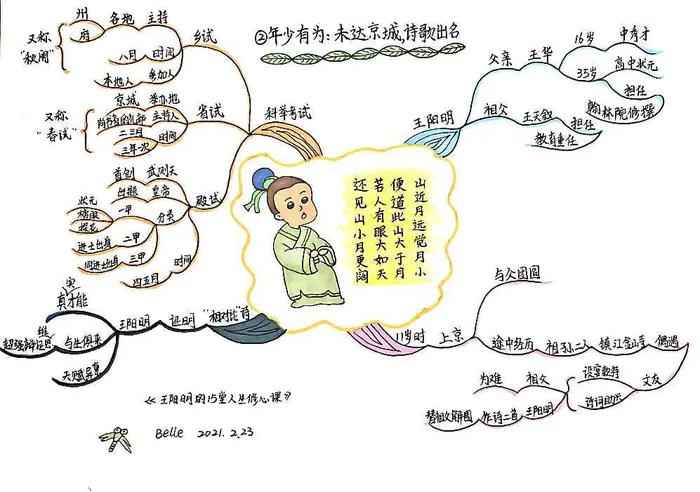 ②年少有为:未达京城,诗歌出名
科举考试
乡试
主持
各地
州
府
时间
八月
参加人
本地人
又称
"秋闱"
省试
举办地
京城
主持人
尚书省礼部
时间
二三月
三年一次
又称
"春试"
殿试
武则天
首创
皇帝
出题
分类
一甲
状元
榜眼
探花
二甲
进士出身
三甲
同进士出身
时间
四五月
王阳明
父亲
王华
16岁
中秀才
35岁
高中状元
担任
翰林院修撰
祖父
王天叙
担任
教育重任
山近月远觉月小
便道此山大于月
若人有眼大如天
还见山小月更阔
11岁时
上京
与父团圆
途中经历
祖孙二人
镇江金山寺
偶遇
文友
设宴款待
诗词助兴
祖父
为难
王阳明
作诗二首
替祖父解围
"相对论"诗
证明
王阳明
真才能
寅
与生俱来
超强辩证思
维
天赋异禀
《王阳明的15堂人生修心课》
Belle 2021.2.23